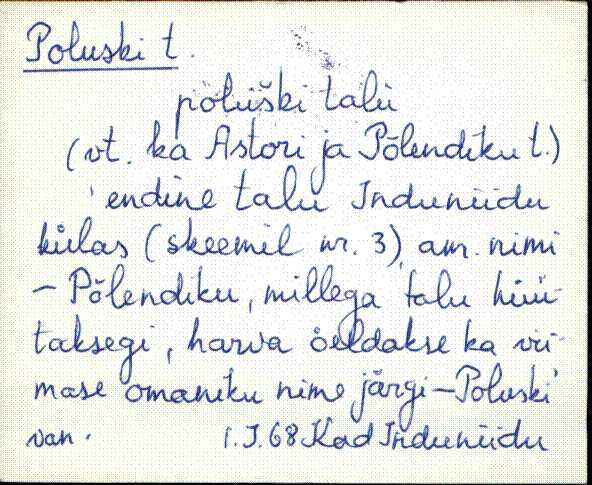 Poluski t.
poluški talu
(vt. ka Astori ja Põlendiku t.)
endine talu Induniidu
külas (skeemil nr. 3), amr. nimi
– Põlendiku, millega talu hüü-
taksegi, harva öeldakse ka vii-
mase omaniku nime järgi – Poluski
van. I.J.68 Kad Induniidu